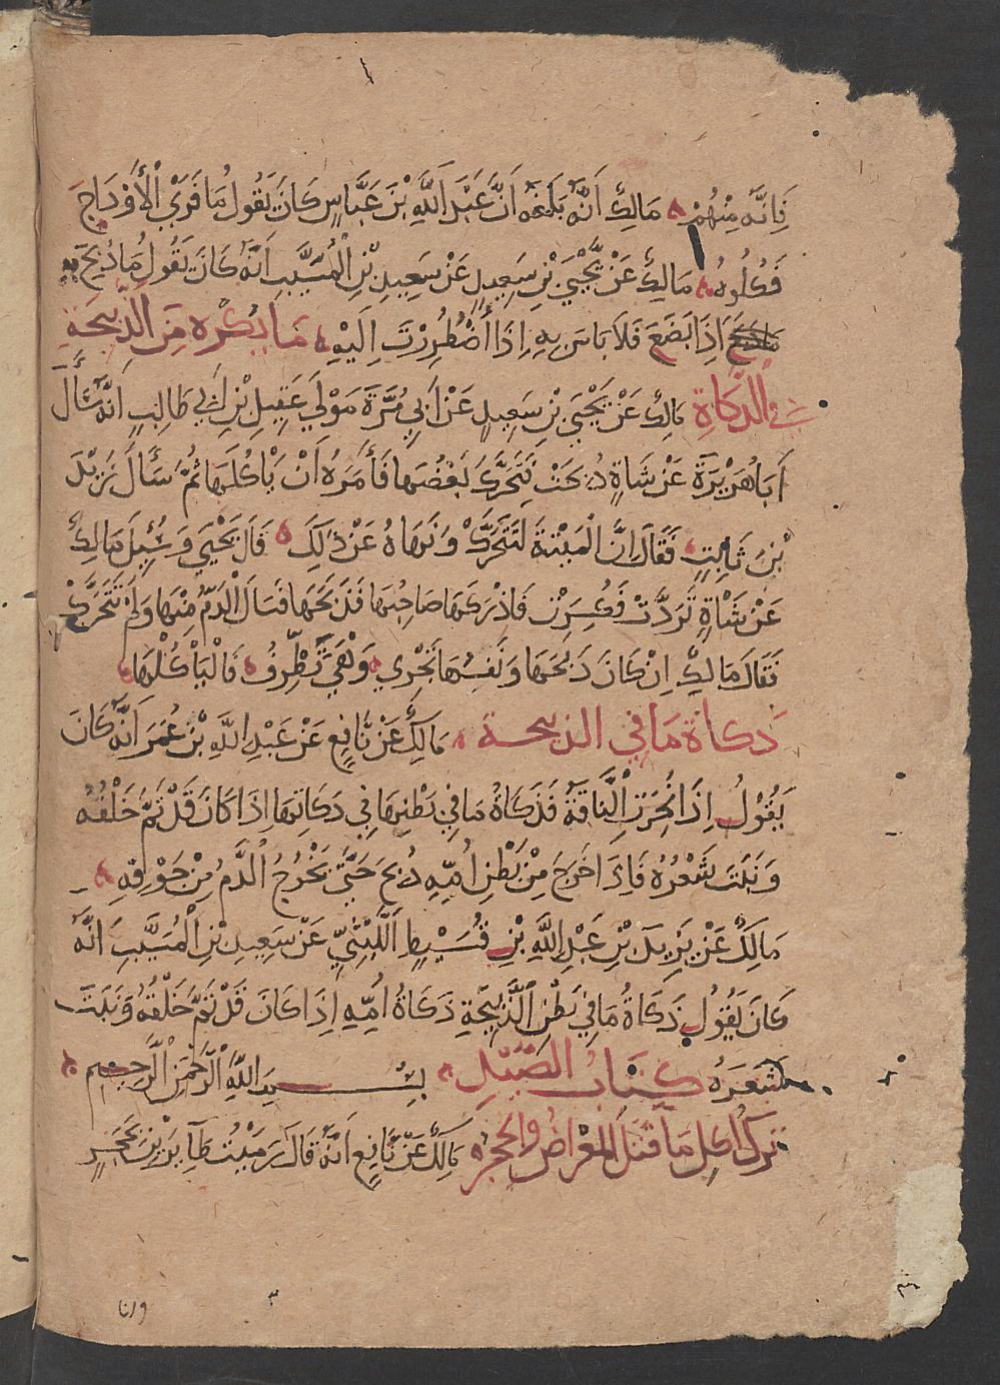 فَاِنَّه مِنْهُمْ مَالِكٌ اَنَّه بَلَغَه اَنَّ عَبْدَ اللَّهِ بْنَ عَبَّاسٍ كَانَ يَقُولُ مَا فَرَي الْاَوْدَاجَ
فَكُلُوهُ مَالِكٌ عَنْ يَحْيَي بْنِ سَعِيدٍ عَنْ سَعِيدِ بْنِ الْمُسَيَّبِ اَنَّه كَانَ يَقُولُ مَا ذُبِحَ بِهِ
اِذَا بَضَعَ فَلَا بَاسَ بِهِ اِذَا اضْطُرِرْتَ اِلَيْهِ مَا يُكْرَه مِنَ الذَّبِيحَةِ
فِي الذَّكَاةِ مَالِكٌ عَنْ يَحْيَي بْنِ سَعِيدٍ عَنْ اَبِي مُرَّةَ مَوْلَي عَقِيلِ بْنِ اَبِي طَالِبٍ اَنَّه سَأَلَ
اَبَا هُرَيْرَةَ عَنْ شَاةٍ ذُبِحَتْ فَتَحَرَّكَ بَعْضُهَا فَأَمَرَهُ اَنْ يَاْكُلَهَا ثُمَّ سَأَلَ زَيْدَ
بْنَ ثَابِتٍ فَقَالَ اِنَّ الْمَيْتَةَ لَتَتَحَرَّكُ وَنَهَاهُ عَنْ ذٰلِكَ قَالَ يَحْيَي وَسُئِلَ مَالِكٌ
عَنْ شَاةٍ تَرَدَّتْ فَكُسِرَتْ فَاَدْرَكَهَا صَاحِبُهَا فَذَبَحَهَا فَسَالَ الدَّمُ مِنْهَا وَلَمْ تَتَحَرَّكْ
فَقَالَ مَالِكٌ اِنْ كَانَ ذَبَحَهَا وَنَفَسُهَا يَجْرِي وَهْيَ تَطْرِفُ فَالْيَاْكُلْهَا
ذكاة مَا في الذبيحة مَالِكٌ عَنْ نَافِعٍ عَنْ عَبْدِ اللَّهِ بْنِ عُمَرَ اَنَّه كَانَ
يَقُوْلُ اِذَا نُحِرَتِ النَّاقَةُ فَذَكَاةُ مَا فِي بَطْنِهَا فِي ذَكَاتِهَا اِذَا كَانَ قَدْ تَمَّ خَلْقُهُ
وَنَبَتَ شَعْرُهُ فَاِذَا خَرَجَ مِنْ بَطْنِ اُمِّهِ ذُبِحَ حَتَّي يَخْرُجَ الدَّمُ مِنْ جَوْفِهِ
مَالِكٌ عَنْ يَزِيدَ بْنِ عَبْدِ اللَّهِ بْنِ قُسَيْطٍ اللَّيْثِيِّ عَنْ سَعِيدِ بْنِ الْمُسَيَّبِ اَنَّه
كَانَ يَقُولُ ذَكَاةُ مَا فِي بَطْنِ الذَّبِيحَةِ ذَكَاةُ اُمِّهِ اِذَا كَانَ قَدْ تَمَّ خَلْقُهُ وَنَبَتَ
شَعَرَهُ كتاب الصَّيْدِ بِسْمِ اللَّهِ الرَّحْمٰنِ الرَّحِيمِ
تركُ اكل مَا قتل المعراض والحجره مَالِكٌ عَنْ نَافِعٍ اَنَّه قَالَ رَمَيْتُ طَآيِرَيْنِ بَحَجَرٍ
وانا